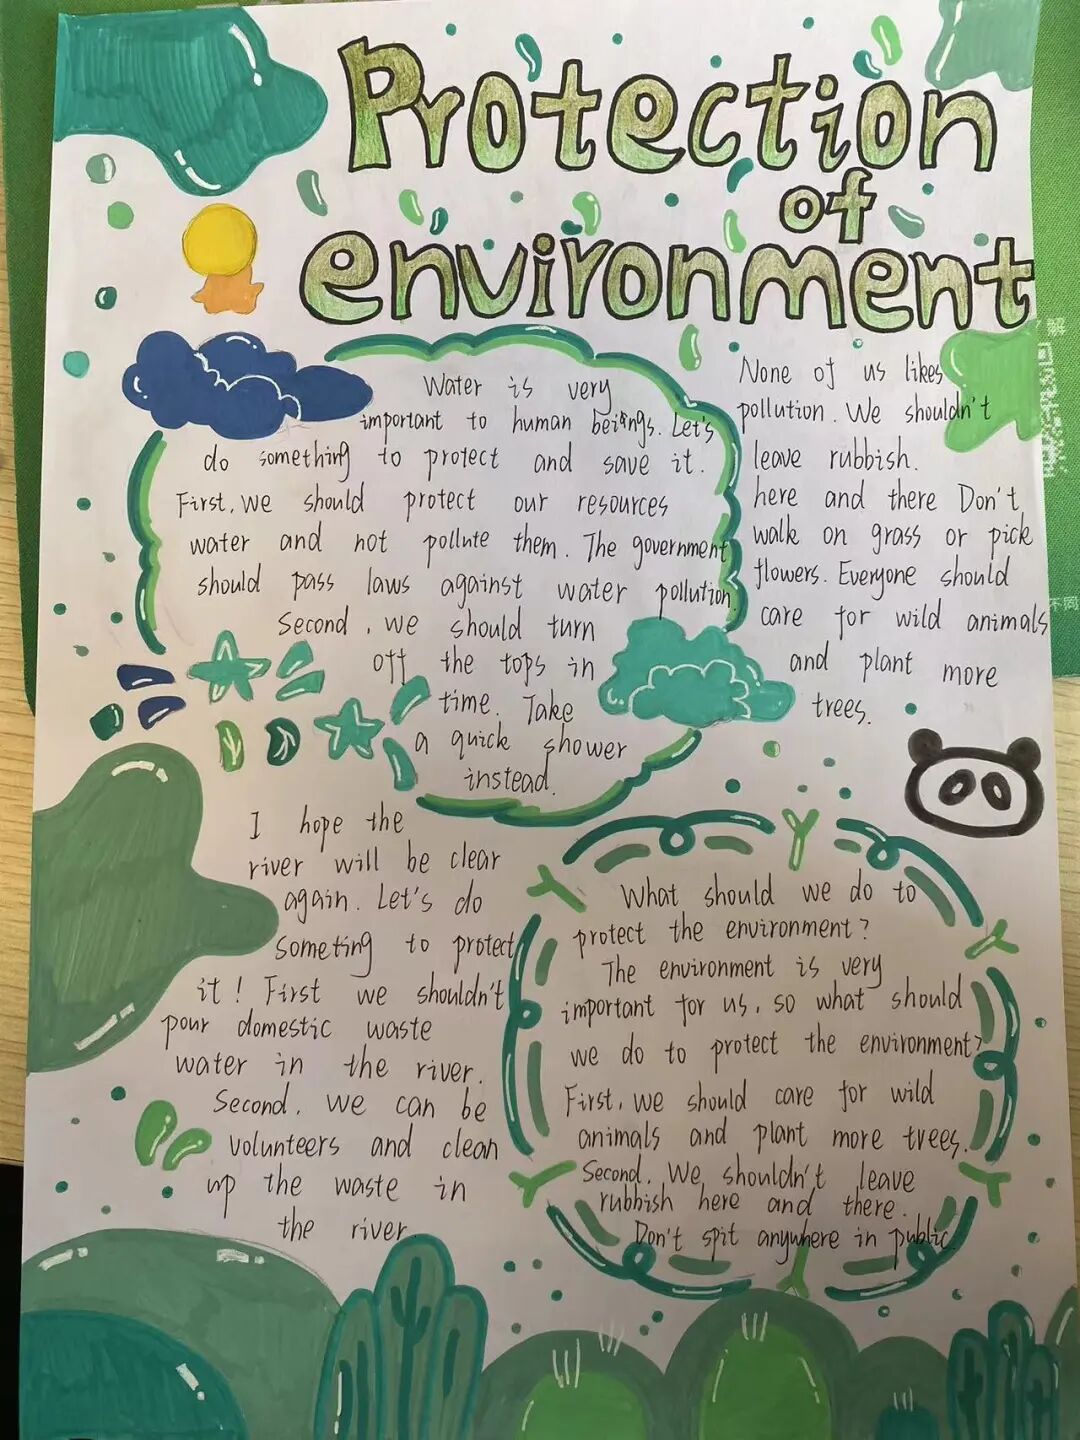 Protection
of
environment
Water is very
important to human beings. Let's
do something to protect and save it.
First, we should protect our resources
water and not pollute them. The government
should pass laws against water pollution.
Second, we should turn
off the tops in
time. Take
a quick shower
instead.
None of us likes
pollution. We shouldn't
leave rubbish.
here and there Don't
walk on grass or pick
flowers. Everyone should
care for wild animals
and plant more
trees.
I hope the
river will be clear
again. Let's do
someting to protect
it! First we shouldn't
pour domestic waste
water in the river.
Second, we can be
volunteers and clean
up the waste in
the river
What should we do to
protect the environment?
The environment is very
important for us, so what should
we do to protect the environment?
First, we should care for wild
animals and plant more trees.
Second, We shouldn't leave
rubbish here and there.
Don't spit anywhere in public.
不同